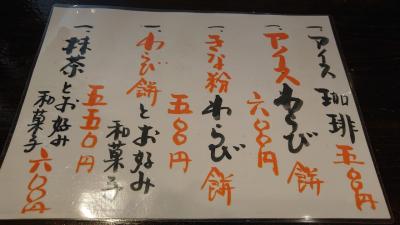 一、アイス珈琲 五〇〇円
一、アイスわらび餅 六〇〇円
一、きな粉わらび餅 五〇〇円
一、わらび餅とお好み和菓子 五五〇円
一、抹茶とお好み和菓子 六〇〇円